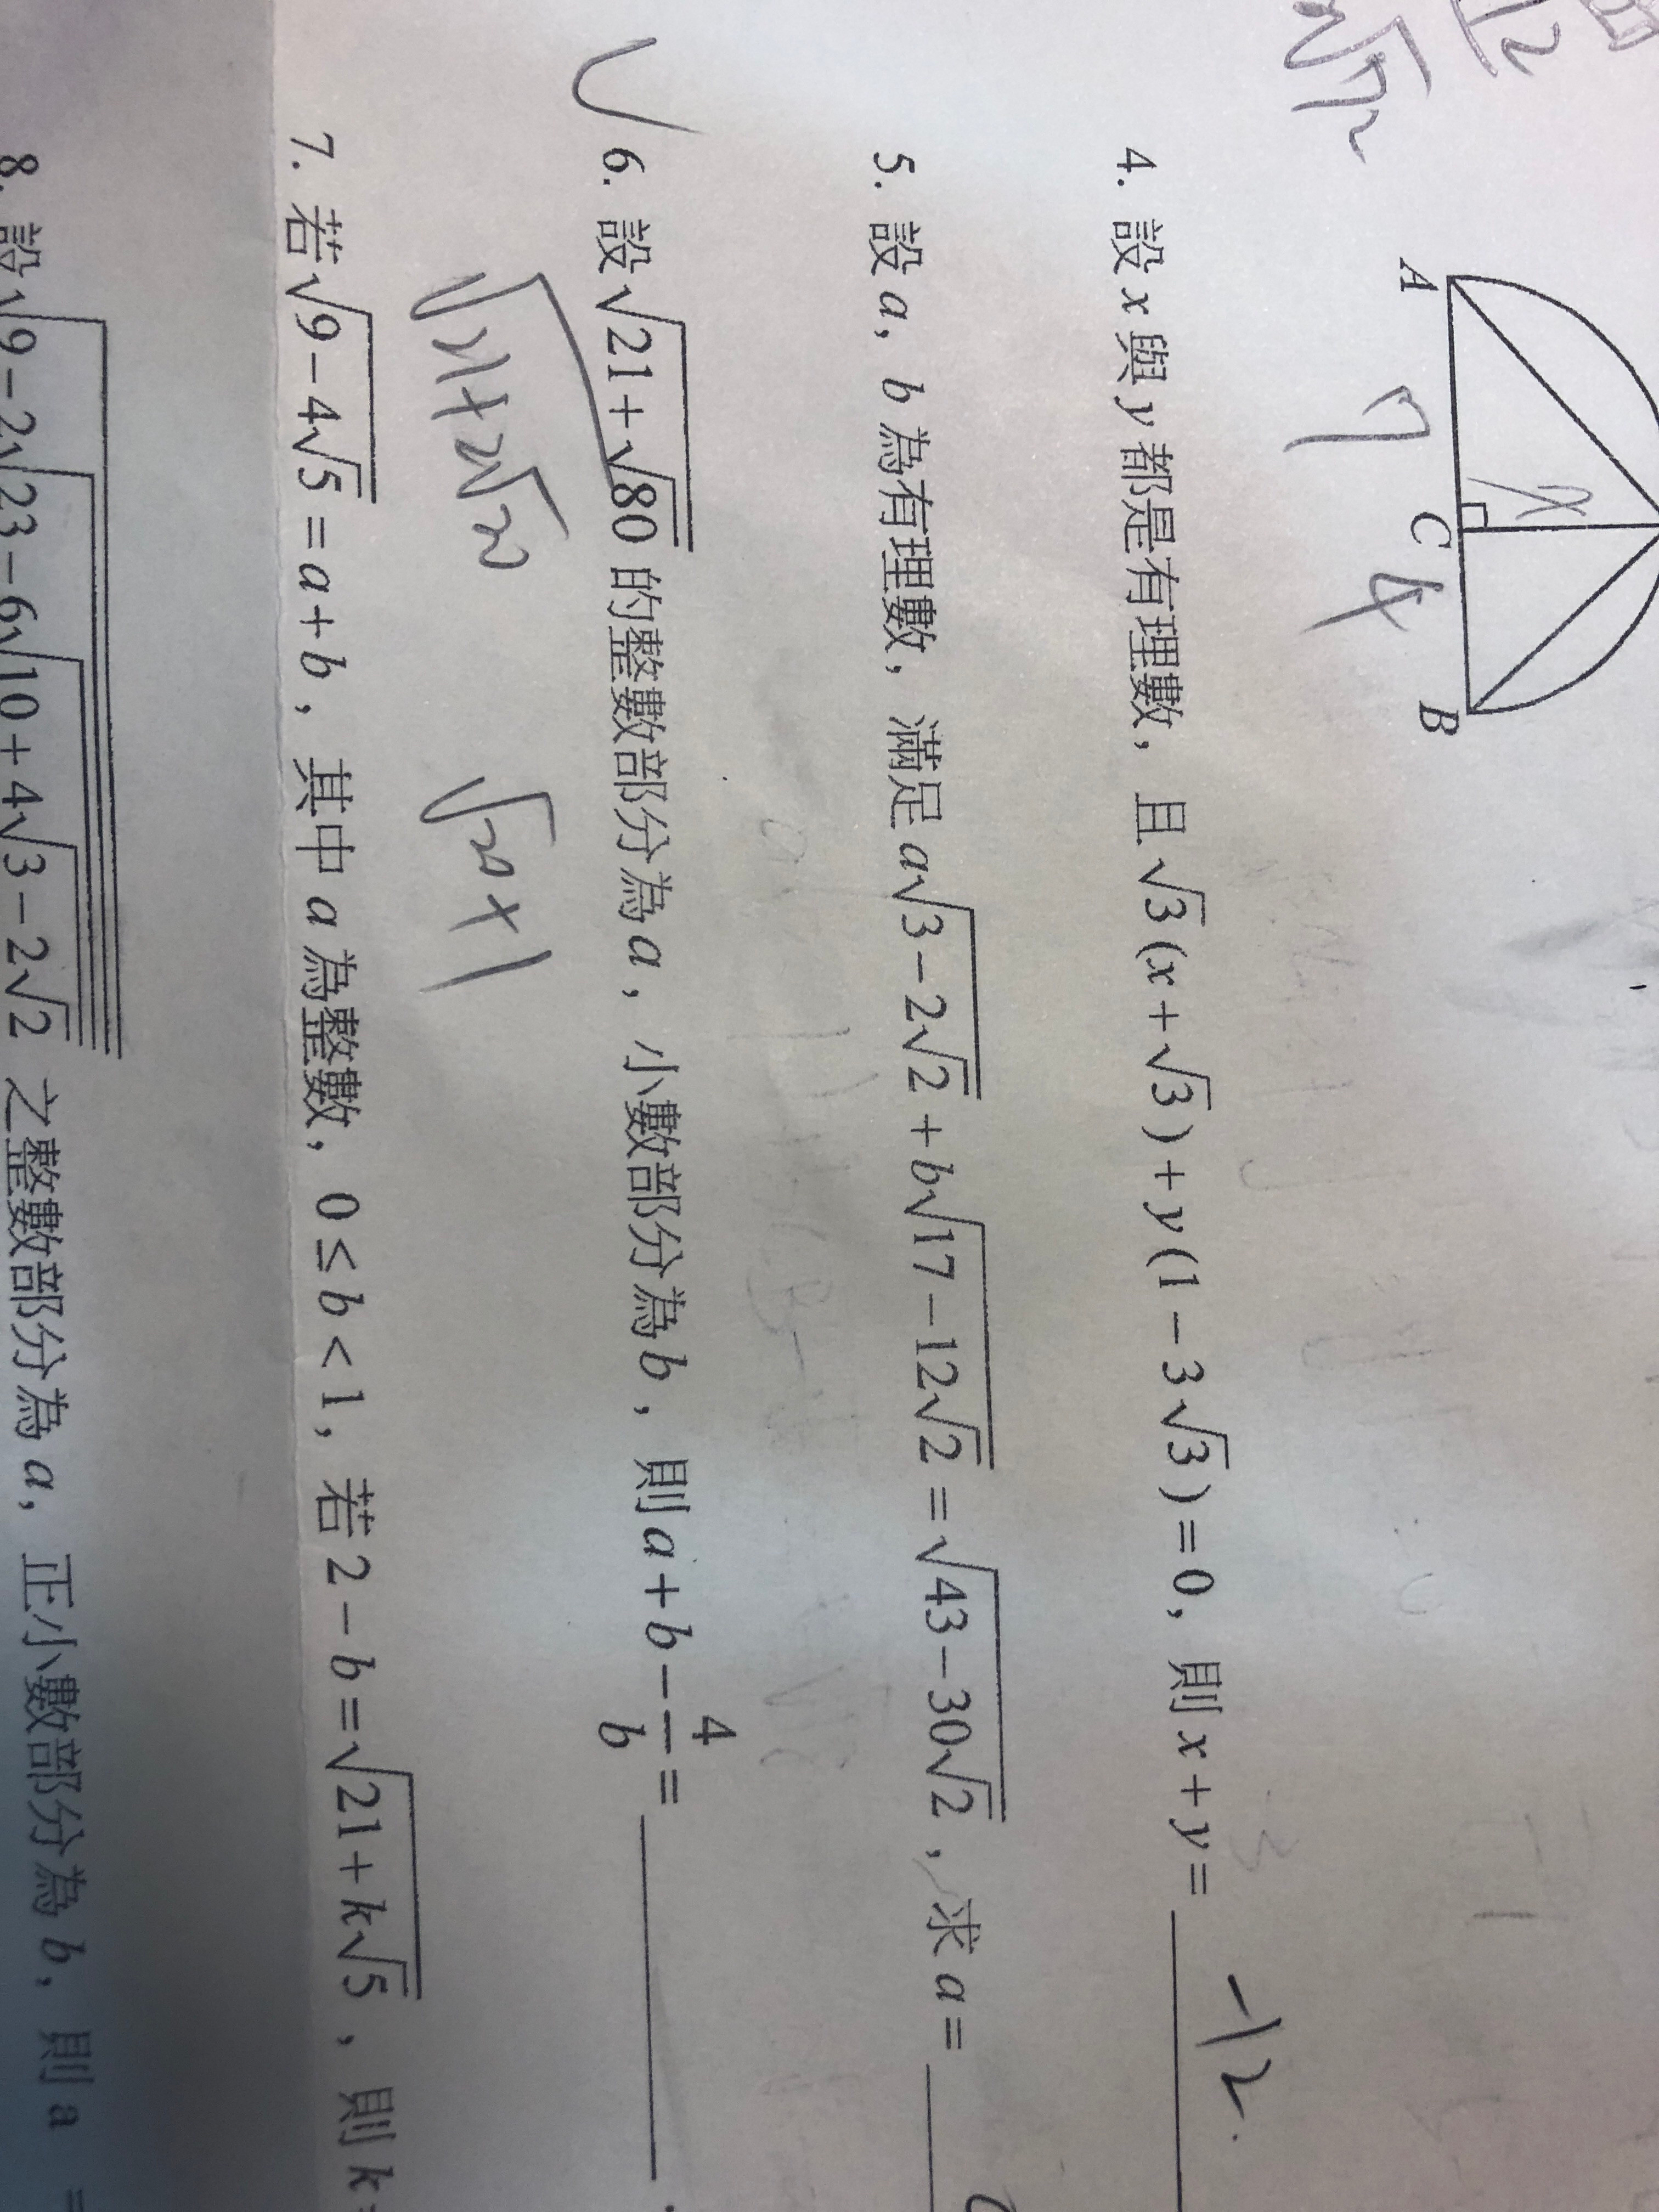 12
A C B
7 x 4
4. 設 x 與 y 都是有理數，且 √3(x+√3)+y(1−3√3)=0，則 x+y= -12.
5. 設 a，b 為有理數，滿足 a√(3−2√2)+b√(17−12√2)=√(43−30√2)，求 a=
6. 設 √(21+√80) 的整數部分為 a，小數部分為 b，則 a+b−4/b=
√(21+2√20) √20+1
7. 若 √(9−4√5)=a+b，其中 a 為整數，0≤b<1，若 2−b=√(21+k√5)，則 k=
8. 設 √(9−2√(23−6√(10+4√(3−2√2)))) 之整數部分為 a，正小數部分為 b，則 a =